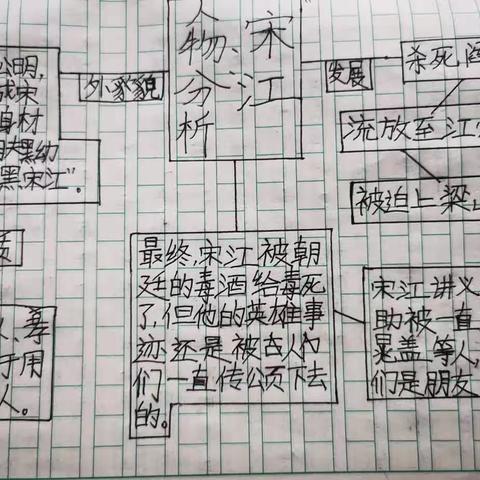 人
物、宋
分江
析
外豸貌
公明,
宋
身材
黑幼
黑宋江”。
发展
杀死
流放至江
被迫上梁
最终,宋江被朝
廷的毒酒给毒死
了,但他的英雄事
迹还是被古人们
们一直传颂下去
的。
宋江讲义
助被一直
晁盖等人,
们是朋友
、孝
于用
人。